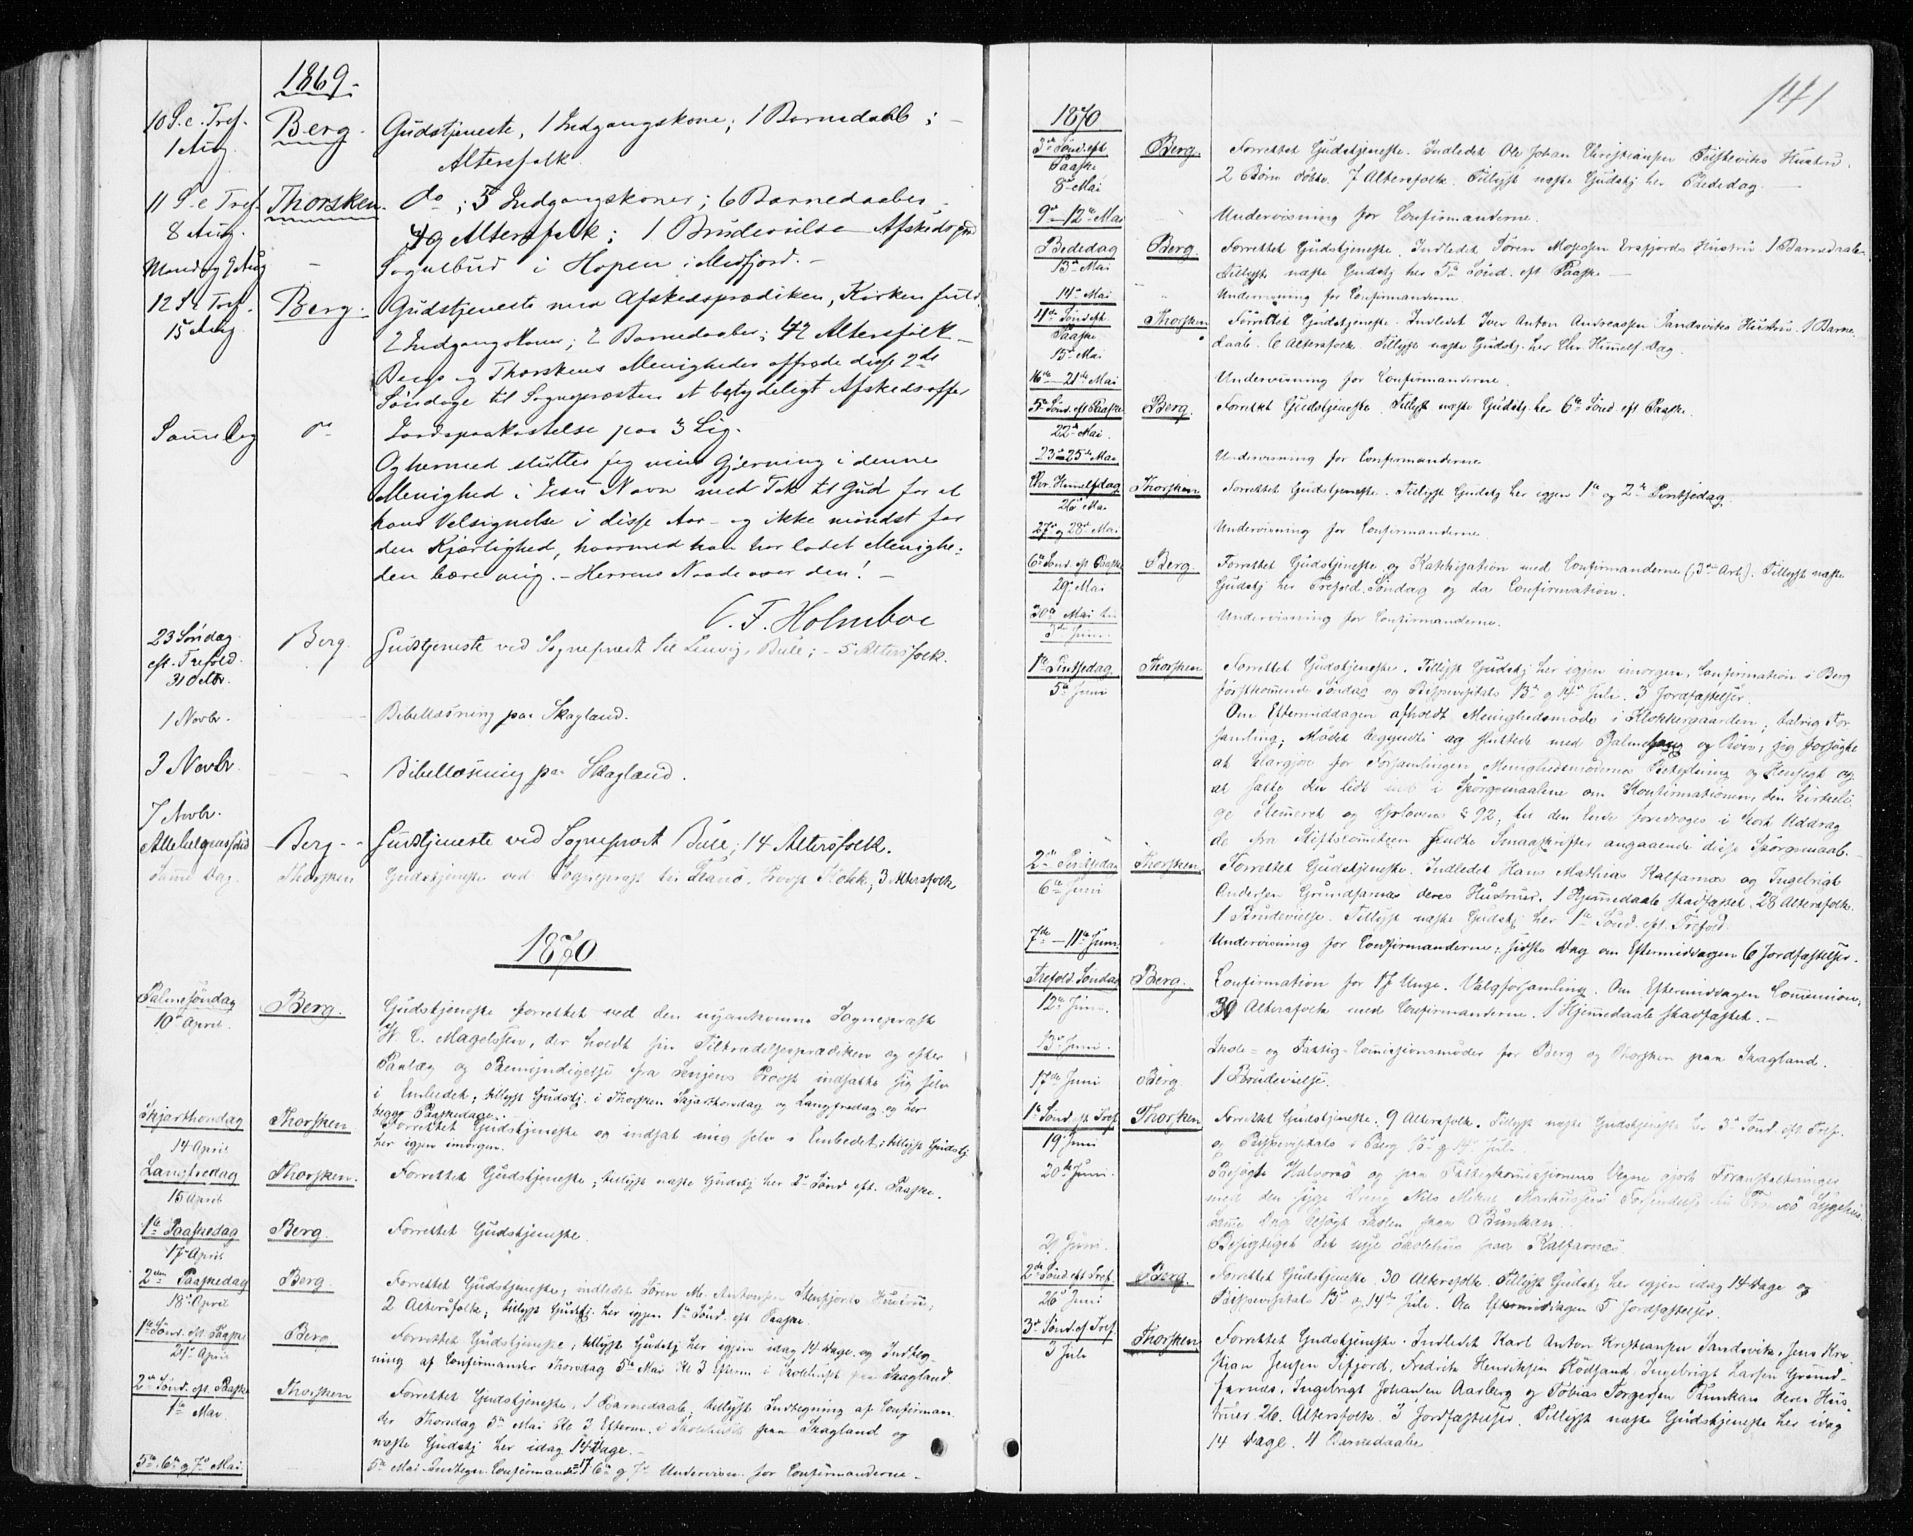 1869.
10 S. e. Tref. Berg. Gudstjeneste, 1 Indgangskone; 1 Barnedaab;
1 Aug. Altersfolk
11 S. e Tref. Thorsken. do; 5 Indgangskoner; 6 Barnedaaber
8 Aug. 49 Altersfolk; 1 Brudevielse Afskedspræd
Mandag 9 Aug — Sognebud i Hopen i Medfjord. —
12 S. e Tref. Berg. Gudstjeneste med Afskedsprædiken, Kirken fuld.
15 Aug. 2 Indgangskoner; 2 Barnedaaber; 42 Altersfolk —
Bergs og Thorskens Menigheder offrede disse 2de
Søndage til Sognepræsten et betydeligt Afskedsoffer
Samme Dag do Jordpaakastelse paa 3 Lig.
Og hermed slutter jeg min Gjerning i denne
Menighed i Jesu Navn med Tak til Gud for al
hans Velsignelse i disse Aar — og ikke mindst for
den Kjærlighed, hvormed han har ladet Menighe-
den bære mig. — Herrens Naade over den! —
C. F. Holmboe
23 Søndag Berg. Gudstjeneste ved Sognepræst til Lenvig, Bull; — 5 Altersfolk.
eft. Trefold.
31 Octbr.
1 Novbr. — Bibellæsning paa Skagland.
3 Novbr. — Bibellæsning paa Skagland.
7 Novbr.
Allehelgensfest Berg. Gudstjeneste ved Sognepræst Bull; 14 Altersfolk.
samme Dag. Thorsken Gudstjeneste ved Sognepræst til Tranø, Provst Kokk; 3 Altersfolk
1870
Palmesøndag Berg. Gudstjeneste forrettet ved den nyankomne Sognepræst
10de April. W. C. Magelssen, der holdt sin Tiltrædelsesprædiken og efter
Paalæg og Bemyndigelse fra Senjens Provst indsatte sig selv
i Embedet; tillyst Gudstj. i Thorsken Skjærthorsdag og Langfredag og her
begge Paaskedage.
Skjærthorsdag Thorsken Forrettet Gudstjeneste og indsat mig selv i Embedet; tillyst Gudstj
14 April her igjen imorgen.
Langfredag Thorsken. Forrettet Gudstjeneste; tillyst næste Gudstj her 2den Sønd eft. Paaske.
15 April
1ste Paaskedag Berg. Forrettet Gudstjeneste.
17 April
2den Paaskedag Berg. Forrettet Gudstjeneste; indledet Søren M. Antonsen Stenfjords Hustru;
18de April 2 Altersfolk; tillyst Gudstj. her igjen 1ste Sønd. eft. Paaske.
1ste Sønd. eft. Paaske Berg. Forrettet Gudstjeneste; tillyst Gudstj her igjen idag 14 Dage. og Indteg-
24de April ning af Confirmander Thorsdag 5te Mai Kl 3 Efterm i Skolehuset paa Skagland
2den Sønd. eft. Paaske Thorsken Forrettet Gudstjeneste, 1 Barnedaab; tillyst Indtegning af Confirman
1ste Mai. der Thorsdag 5te Mai Kl 3 Efterm. i Skolehuset paa Skagland og
næste Gudstj her idag 14 Dage.
5te. 6te og 7de Mai. 5te Mai Indtegn. Confirmander; 6te og 7de Undervisn. for Confirmanderne.
141
1870
3die Sønd eft Berg. Forrettet Gudstjeneste. Indledet Ole Johan Christiansen Hustru.
Paaske 2 Børn døbte. 7 Altersfolk. Tillyst næste Gudstj her Bededag.
8de Mai
9de — 12te Mai Undervisning for Confirmanderne.
Bededag Berg. Forrettet Gudstjeneste. Indledet Søren Mosessen Ersfjords Hustru. 1 Barnedaab.
13de Mai Tillyst næste Gudstj her 5te Sønd. eft Paaske
14de Mai Undervisning for Confirmanderne.
4de Sønd eft Thorsken Forrettet Gudstjeneste. Indledet Iver Anton Andreassen Sandsvikes Hustru. 1 Barne
Paaske daab. 6 Altersfolk. Tillyst næste Gudstj. her Chr. Himmelf. Dag.
15de Mai
16de — 21de Mai Undervisning for Confirmanderne.
5te Sønd. eft Paaske Berg. Forrettet Gudstjeneste. Tillyst næste Gudstj. her 6te Sønd. eft Paaske.
22de Mai.
23 — 25de Mai Undervisning for Confirmanderne
Chr. Himmelfdag Thorsken Forrettet Gudstjeneste. Tillyst Gudstj her igjen 1ste og 2den Pintsedag.
26de Mai
27de og 28de Mai Undervisning for Confirmanderne.
6te Sønd. eft Paaske Berg. Forrettet Gudstjeneste og Katekisation med Confirmanderne (3die Art). Tillyst næste
29de Mai Gudstj her Trefold. Søndag og da Confirmation.
30te Mai til Undervisning for Confirmanderne.
3die Juni.
1ste Pintsedag Thorsken Forrettet Gudstjeneste. Tillyst Gudstj her igjen imorgen, Confirmation i Berg
5te Juni førstkommende Søndag og Bispevisitats 13de og 14de Juli. 3 Jordfæstelser.
Om Eftermiddagen afholdt Menighedsmøde i Klokkergaarden; talrig For
samling; Mødet begyndte og sluttede med Psalmesang og Bøn; jeg forsøgte
at klargjøre for Forsamlingen Menighedsmødernes Betydning og Hensigt og
at sætte den lidt ind i Spørgsmaalene om Konfirmationen, den kirkeli
ge Stemeret og Grlovens § 92; til den Ende foredroges i kort Uddrag
de fra Stiftscomiteen sendte Smaaskrifter angaaende disse Spørgsmaal.
2den Pintsedag Thorsken Forrettet Gudstjeneste. Indledet Hans Mathias Kalfarnes og Ingebrigt
6te Juni Andersen Grundfarnæs deres Hustruer. 1 Hjemmedaab stadfæstet. 28 Altersfolk.
1 Brudevielse. Tillyst næste Gudstj her 1ste Sønd. eft. Trefold.
7de — 11te Juni. Undervisning for Confirmanderne; sidste Dag om Eftermiddagen 6 Jordfæstelser.
Trefold. Søndag Berg. Confirmation for 17 Unge. Valgforsamling. Om Eftermiddagen Communion;
12te Juni. 30 Altersfolk med Confirmanderne. 1 Hjemmedaab stadfæstet. —
13de Juni. Skole- og Fattig-Comissionsmøder for Berg og Thorsken paa Skagland.
17de Juni Berg. 1 Brudevielse.
1ste Sønd. eft Tref. Thorsken Forrettet Gudstjeneste. 9 Altersfolk. Tillyst næste Gudstjeneste her 3die Sønd. eft Tref.
19 Juni og Bispevisitats i Berg 13de og 14de Juli.
20de Juni. Besøgte Halvorsø og paa Fattigkommissionens Vegne gjort Foranstaltninger
med den syge Dreng Nils Mikal Markussens Forsendelse til Tromsø Sygehus.
Samme Dag besøgt Skolen paa Bunkan.
21 Juni. Besigtiget det nye Skolehus paa Kalfarnes
2den Sønd eft Tref. Berg. Forrettet Gudstjeneste. 30 Altersfolk. Tillyst Gudstj her igjen idag 14 Dage og
26de Juni Bispevisitats 13de og 14de Juli. Om Eftermiddagen 5 Jordfæstelser.
3die Sønd. ef Tref. Thorsken Forrettet Gudstjeneste. Indledet Karl Anton Kristiansen Sandsvik, Jens Kri
3 Juli stian Jensen Sifjord, Fredrik Henriksen Rødsand, Ingebrigt Larsen Grund-
farnes, Ingebrigt Johansen Aarberg og Tobias Jørgensen Bunkans deres Hus-
truer. 26 Altersfolk. 3 Jordfæstelser. Tillyst næste Gudstjeneste her idag
14 Dage. 4 Barnedaabe.